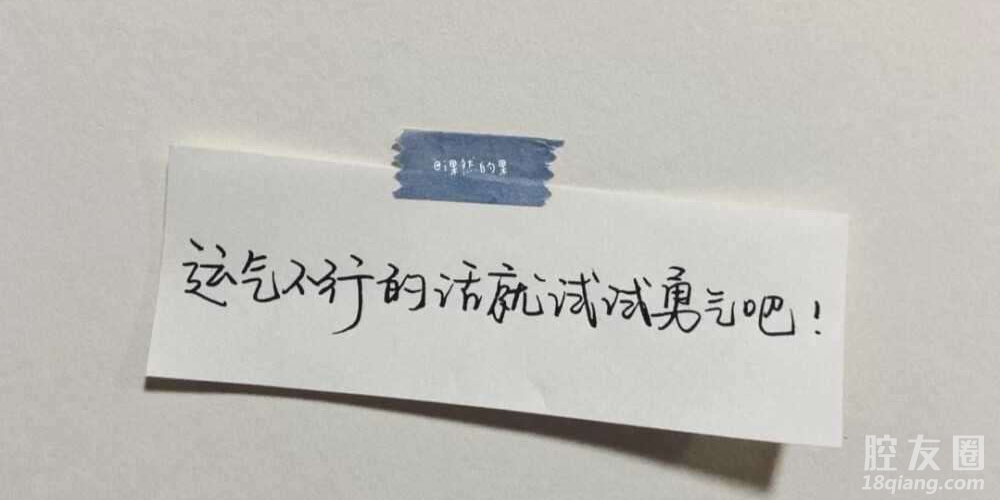 @课然的果
运气不行的话就试试勇气吧！
腔友圈
18qiang.com